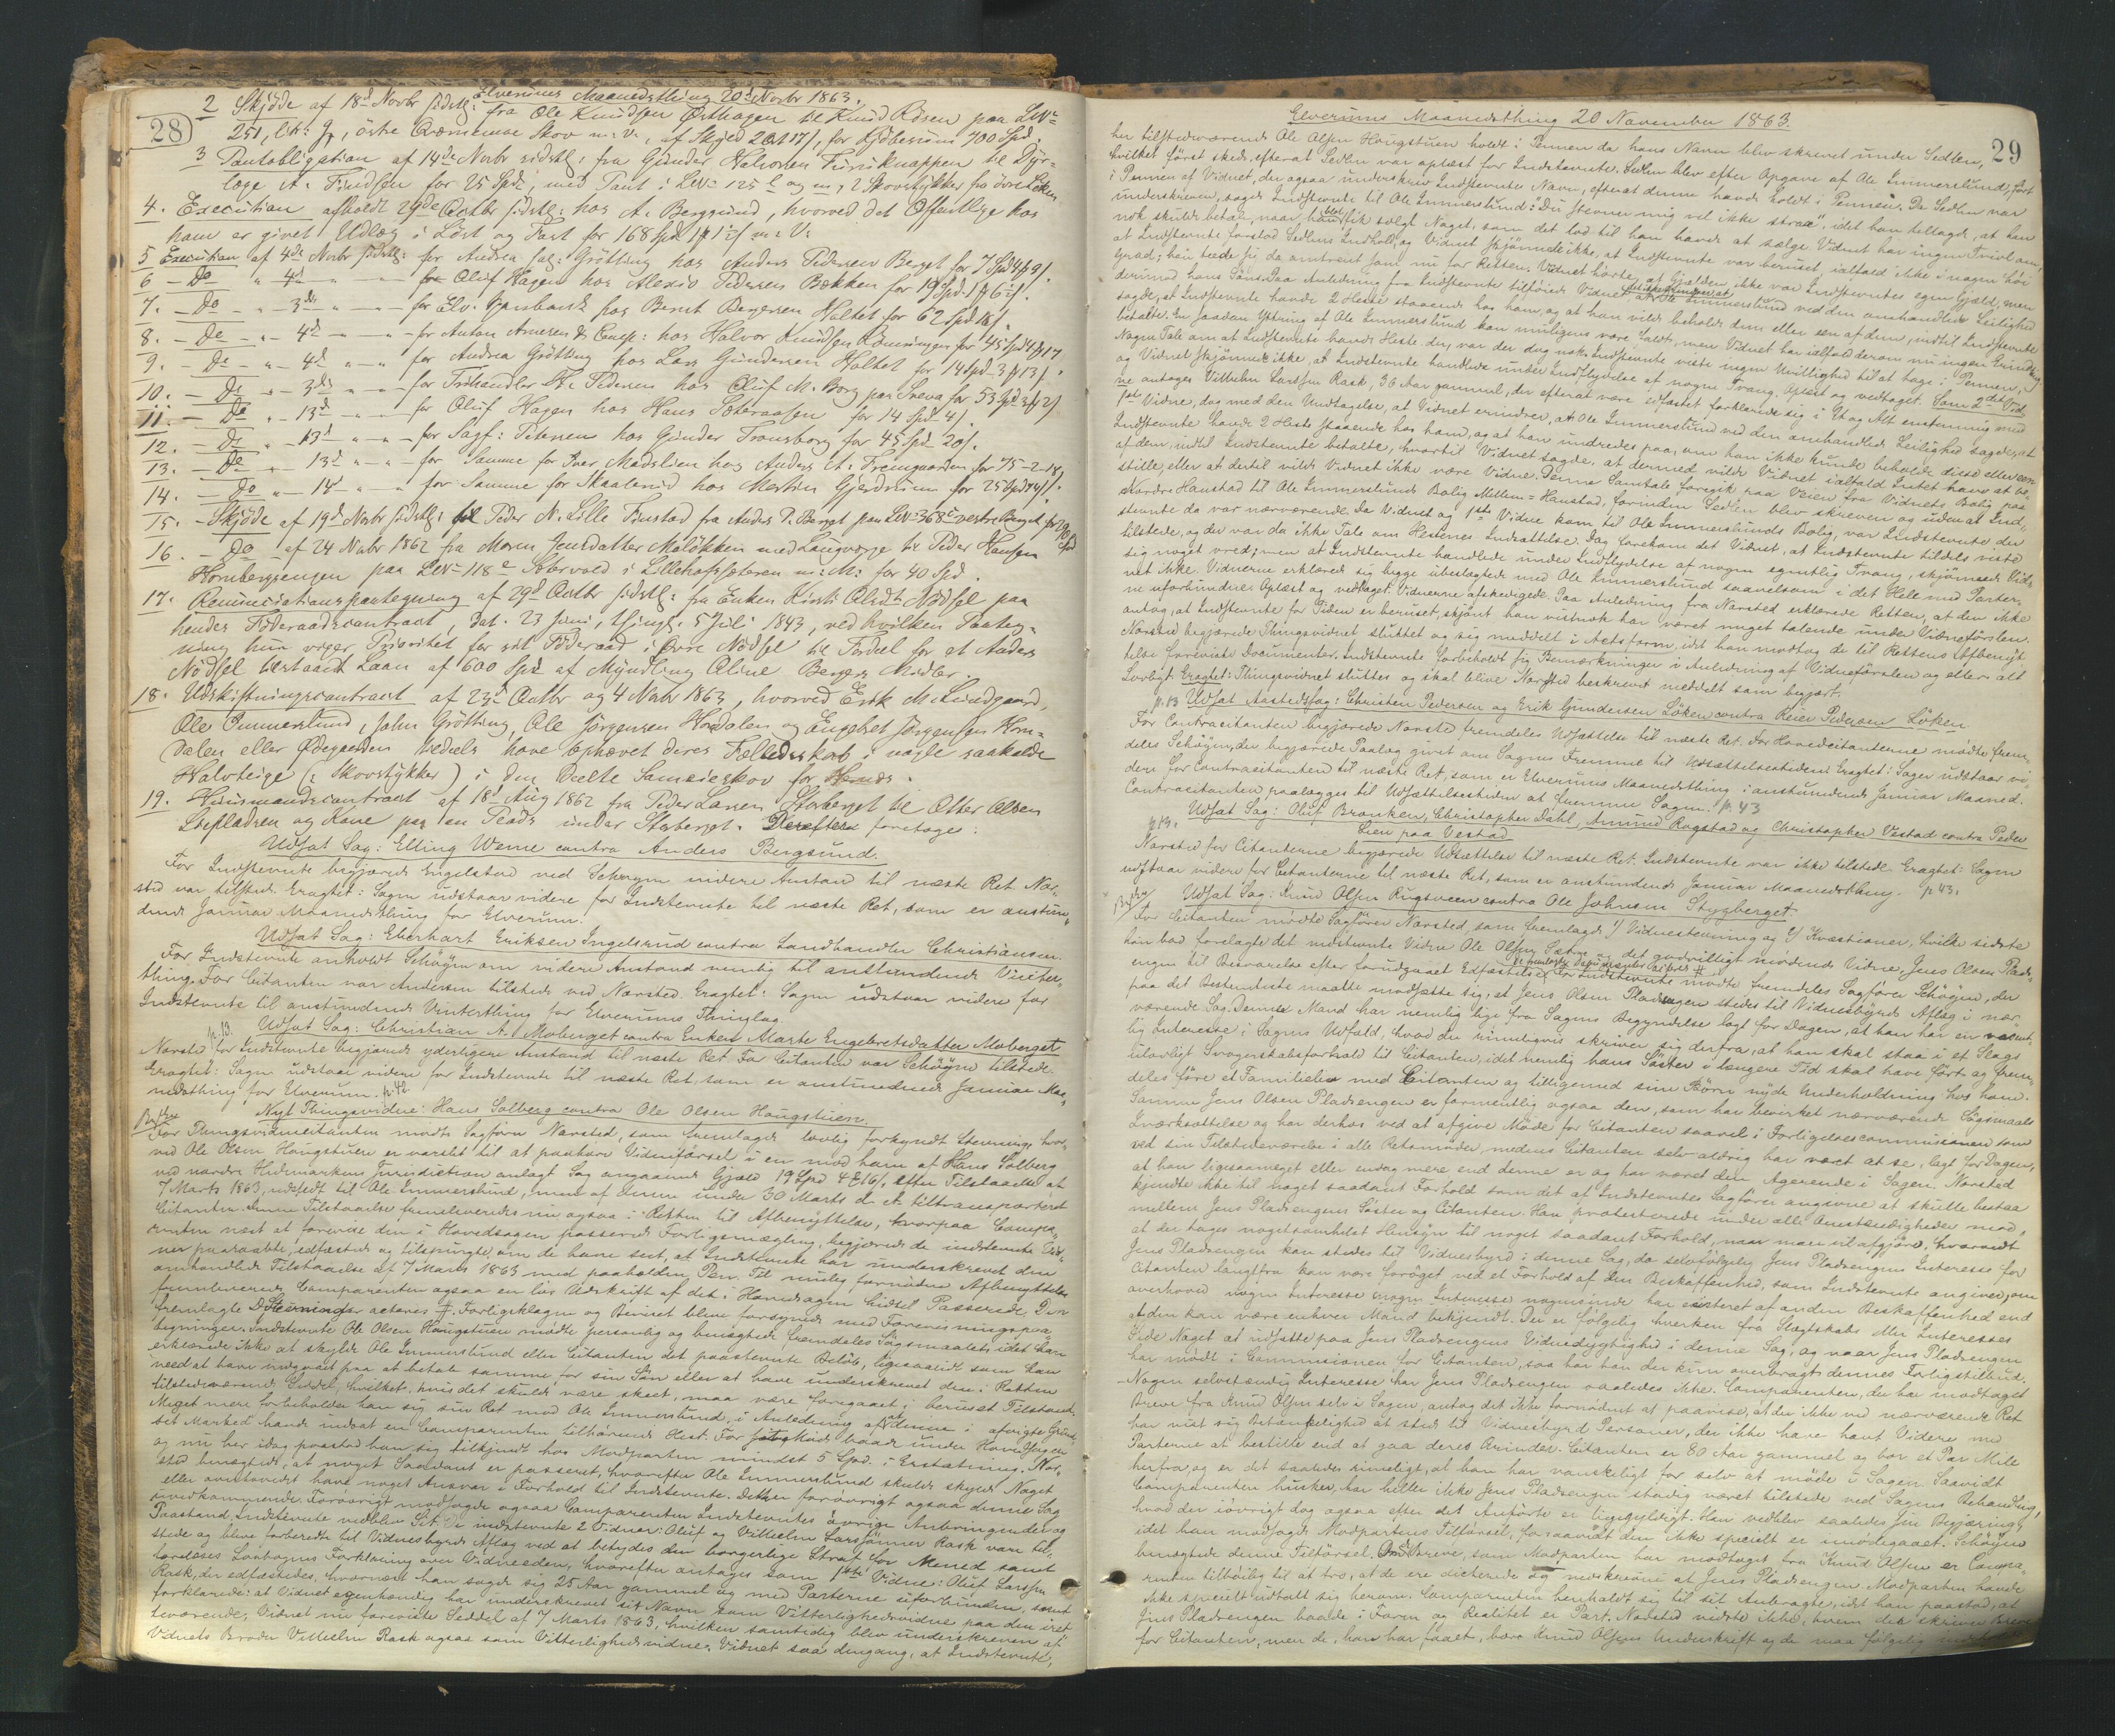 28
Elverums Maanedsthing 20d Novbr 1863.
2 Skjøde af 18d Novbr sidstl: fra Ole Knudsen Østhagen til Knud Olsen paa LNo
251, litr: g, østre Qværnemoe Skov m: V:, af Skyld 2 Ort 17 s, for Kjøbesum 700 Spd.
3 Pantobligation af 14de Novbr sidstl: fra Gunder Halvorsen Furuknappen til Dyr-
læge A. Findsen for 25 Spd, med Pant i LNo 125 og m, 2 Skovstykker fra øvre Løken
4. Execution afholdt 29de Octbr sidstl: hos A. Bergsund, hvorved det Offentlige hos
ham er givet Udlæg i Løst og Fast for 168 Spd 1 1 s m: V:
5 Execution af 4de Novbr sidstl: for Andrea Grøtting hos Anders Pedersen Berget for 7 Spd 4 9 s.
6 - Do " 4d - " - for Oluf Hagen hos Alexis Pedersen Bakken for 19 Spd 1 6 s.
7. - Do - " - 3die - " - for Elv. Sparebank hos Bernt Bergersen Holtet for 62 Spd 16 s.
8. - Do - " - 4d - " - for Anton Arnesen & Comp: hos Halvor Knudsen for 45 Spd 4 17
9. - Do - " - 4d " - " - for Andrea Grøtting hos Lars Gundersen Holtet for 14 Spd 3 13 s.
10. - Do - " - 3die - " - for Frihandler Fr. Pedersen hos Oluf M. Borg paa Sveva for 53 Spd 3 2 s
11. - Do " - 13d - " - for Oluf Hagen hos Hans Sæteraasen for 14 Spd 4 s.
12. - Do " - 13d - " - for Sagf: Petersen hos Gunder Transborg for 45 Spd 20 s.
13. - Do " - 13d - " - for Samme for Iver Madslien hos Anders A. Fremgaarden for 75-2-18
14. - Do " - 14d - " - for Samme for Skaalerud hos Martin Gjerdrum for 25 Spd 44 s.
15. - Skjøde af 19d Novbr sidstl: til Peder N. Lille Frustad fra Anders P. Berget paa LNo 368 vestre Berget for 290 Spd
16. - Do af 24 Novbr 1862 fra Maren Jensdatter Moløkken med Laugværge til Peder Hansen
Hornbergsengen paa LNo 118 Sobervold i Lillehofsæteren m: M: for 40 Spd.
17. Renunciationspaategning af 29d Octbr sidstl: fra Enken Kirsti Olsdtr Nødsel paa
hendes Føderaadscontract, dat. 23 Juni, thingl. 5 Juli 1843, ved hvilken Paateg-
ning hun viger Prioritet for sit Føderaad i Øvre Nødsel til Fordeel for et Anders
Nødsel tilstaaet Laan af 600 Spd af Myndling Oline Bergers Midler.
18. Udskiftningscontract af 23d Octbr og 4 Novbr 1863, hvorved Erik M. Lindgaard,
Ole Emmerslund, John Grøtting, Ole Jørgensen Horndalen og Engebret Jørgensen Horn-
dalen eller Ødegaarden tildeels have ophævet deres Fælledsskab i nogle saakaldte
Halvteige (: Skovstykker) i den Deelte Sameieskov for Hernes.
19. Huusmandscontract af 18d Aug 1862 fra Peder Larsen Storberget til Otter Olsen
Løvpladsen og Kone paa en Plads under Storberget. Derefter foretoges:
Udsat Sag: Elling Werne contra Anders Bergsund.
For Indstevnte begjærede Engelstad ved Schøyen videre Anstand til næste Ret. Nar-
sted var tilstede. Eragtet: Sagen udstaar videre for Indstevnte til næste Ret, som er anstun-
dende Januar Maanedsthing for Elverum.
Udsat Sag: Eberhart Eriksen Ingelsrud contra Landhandler Christiansen.
For Indstevnte anholdt Schøyen om videre Anstand nemlig til anstundende Vinter-
thing. For Citanten var Andersen tilstede ved Narsted. Eragtet: Sagen udstaar videre for
Indstevnte til anstundende Vinterthing for Elverums Thinglag.
p. 13. Udsat Sag: Christian A. Moberget contra Enken Marte Engebretsdatter Moberget.
Narsted for Indstevnte begjærede yderligere Anstand til næste Ret. For Citanten var Schøyen tilstede.
Eragtet: Sagen udstaar videre for Indstevnte til næste Ret, som er anstundende Januar Maa-
nedsthing for Elverum. p. 42
Nyt Thingsvidne: Hans Solberg contra Ole Olsen Haugstuen.
For Thingsvidnecitanten mødte Sagfører Narsted, som fremlagde lovlig forkyndt Stevning, hvor-
ved Ole Olsen Haugstuen er varslet til at paahøre Vidneførsel i en mod ham af Hans Solberg
ved nordre Hedemarkens Jurisdiction anlagt Sag angaaende Gjæld 19 Spd 4 16 s, efter Tilstaaelse af
7 Marts 1863, udstedt til Ole Emmerslund, men af denne under 30 Marts d. A. tiltransporteret
Citanten. Denne Tilstaaelse fremleveredes nu ogsaa i Retten til Afbenyttelse, hvorpaa Compa-
renten næst at forevise den i Hovedsagen passerede Forligsmægling, begjærede de indstevnte Vid-
ner paaraabte, edfæstede og tilspurgte, om de have seet, at Indstevnte har underskrevet den
omhandlede Tilstaaelse af 7 Marts 1863 med paaholden Pen. Til mulig fornøden Afbenyttelse
fremleverede Comparenten ogsaa en lovl. Udskrift af det i Hovedsagen hidtil Passerede. Den
fremlagte Stevning er acteres. Forligsklagen og Beviset bleve forsynede med Forevisningspaa-
tegninger. Indstevnte Ole Olsen Haugstuen mødte personlig og benægtede fremdeles Søgsmaalet, idet han
erklærede ikke at skylde Ole Emmerslund eller Citanten det paastevnte Beløb, ligesaalidt som han
veed at have indgaaet paa at betale samme for sin Søn eller at have underskrevet den i Retten
tilstedeværende Seddel, hvilket, hvis det skulde være skeet, maa være foregaaet i beruset Tilstand.
Meget mere forbeholder han sig sin Ret mod Ole Emmerslund, i Anledning af at denne i afvigte Grund-
set Marked havde indsat en Comparenten tilhørende Hest. For Møde baade under Hovedsagen
og nu her idag paastod han sig tilkjendt hos Modparten mindst 5 Spd. i Erstatning. Nar-
sted benægtede, at noget Saadant er passeret, hvorefter Ole Emmerslund skulde skylde Noget
eller overhovedet have noget Ansvar i Forhold til Indstevnte. Dette er forøvrigt ogsaa denne Sag
uvedkommende. Forøvrigt modsagde ogsaa Comparenten Indstevntes øvrige Anbringender og
Paastand. Indstevnte vedblev Sit. De indstevnte 2 Vidner: Oluf og Vilhelm Larssønner Rask vare til-
stede og bleve forberedte til Vidnesbyrds Aflæg ved at betydes den borgerlige Straf for Mened samt
forelæses Lovbogens Forklaring over Vidneeden, hvorefter antages som 1ste Vidne: Oluf Larssen
Rask, der edfæstedes, hvornæst han sagde sig 25 Aar gammel og med Parterne uforbunden, samt
forklarede: at Vidnet egenhændig har underskrevet sit Navn som Vitterlighedsvidne paa den iret-
teværende, Vidnet nu foreviste Seddel af 7 Marts 1863, hvilken samtidig blev underskreven af
Vidnets Broder Vilhelm Rask ogsaa som Vitterlighedsvidne. Vidnet saa dengang, at Indstevnte,
Elverums Maanedsthing 20 November 1863.
29
her tilstedeværende Ole Olsen Haugstuen holdt i Pennen da hans Navn blev skrevet under Sedlen,
hvilket først skede, efterat Sedlen var oplæst for Indstevnte. Sedlen blev efter Opgave af Ole Emmerslund, ført
i Pennen af Vidnet, der ogsaa underskrev Indstevntes Navn, efterat denne havde holdt i Pennen. Da Sedlen var
underskreven, sagde Indstevnte til Ole Emmerslund: "Du stevner mig vel ikke strax", idet han tillagde, at han
nok skulde betale, naar han blot fik solgt Noget, som det lod til han havde at sælge. Vidnet har ingen Tvivl om,
at Indstevnte forstod Sedlens Indhold, og Vidnet skjønnede ikke, at Indstevnte var beruset, ialfald ikke i nogen høi
Grad; han teede sig da omtrent som nu for Retten. Vidnet hørte, at Gjælden ikke var Indstevntes egen Gjæld, men
derimod hans Søns. Paa Anledning fra Indstevnte tilføiede Vidnet at Ole Emmerslund ved den omhandlede Leilighed
sagde, at Indstevnte havde 2 Heste staaende hos ham, og at han vilde beholde dem eller een af dem, indtil Indstevnte
betalte. En saadan Yttring af Ole Emmerslund kan muligens være faldt, men Vidnet har ialfald derom nu ingen Erindring.
Nogen Tale om at Indstevnte havde Heste der, var der dog nok. Indstevnte viste ingen Uvillighed til at tage i Pennen,
og Vidnet skjønnede ikke, at Indstevnte handlede under Indflydelse af nogen Tvang. Oplæst og vedtaget. Som 2det Vid-
ne antoges Vilhelm Larssen Rask, 36 Aar gammel, der efterat være edfæstet forklarede sig i Et og Alt enstemmig med
1ste Vidne, dog med den Undtagelse, at Vidnet erindrer, at Ole Emmerslund ved den omhandlede Leilighed sagde, at
Indstevnte havde 2 Heste staaende hos ham, og at han undredes paa, om han ikke kunde beholde disse eller een
af dem, indtil Indstevnte betalte, hvortil Vidnet sagde, at dermed vilde Vidnet ialfald Intet have at be-
stille, eller at dertil vilde Vidnet ikke være Vidne. Denne Samtale foregik paa Veien fra Vidnets Bolig paa
Nordre Haustad til Ole Emmerslunds Bolig Mellem-Haustad, forinden Sedlen blev skreven og uden at Ind-
stevnte da var nærværende. Da Vidnet og 1ste Vidne kom til Ole Emmerslunds Bolig, var Indstevnte der
tilstede, og der var da ikke Tale om Hestenes Indsættelse. Dog forekom det Vidnet, at Indstevnte tildels viste
sig noget vred; men at Indstevnte handlede under Indflydelse af nogen egentlig Tvang, skjønnede Vid-
net ikke. Vidnerne erklærede sig begge ubeslægtede med Ole Emmerslund saavelsom i det Hele med Parter-
ne uforbundne. Oplæst og vedtaget. Vidnerne afskedigede. Paa Anledning fra Narsted erklærede Retten, at den ikke
antog, at Indstevnte for Tiden er beruset, skjønt han vistnok har været meget talende under Vidneførslen.
Narsted begjærede Thingsvidnet sluttet og sig meddelt i Actsform, idet han modtog de til Rettens Afbenyt-
telse foreviste Documenter. Indstevnte forbeholdt sig Bemærkninger i Anledning af Vidneførselen og ellers alt
Lovligt. Eragtet: Thingsvidnet sluttes og skal blive Narsted beskrevet meddelt som begjært.
p. 13 Udsat Aastedssag: Christen Pedersen og Erik Gundersen Løken contra Reier Pedersen Løken.
For Contracitanten begjærede Narsted fremdeles Udsættelse til næste Ret. For Hovedcitanterne mødte frem-
deles Schøyen, der begjærede Paalæg givet om Sagens Fremme til Udsættelsestiden. Eragtet: Sagen udstaar vi-
dere for Contracitanten til næste Ret, som er Elverums Maanedsthing i anstundende Januar Maaned.
Contracitanten paalægges til Udsættelsestiden at fremme Sagen. p. 43
p. 13. Udsat Sag: Oluf Bronken, Christopher Dahl, Amund Rogstad og Christopher Vestad contra Peder
Lien paa Vestad.
Narsted for Citanterne begjærede Udsættelse til næste Ret. Indstevnte var ikke tilstede. Eragtet: Sagen
udstaar videre for Citanterne til næste Ret, som er anstundende Januar Maanedsthing. p. 43.
Udsat Sag: Knud Olsen Rugsveen contra Ole Johnsen Stygberget.
For Citanten mødte Sagfører Narsted, som fremlagde 1/ Vidnestevning og 2/ Kvæstioner, hvilke sidste
han bad forelagte det indstevnte Vidne Ole Olsen Sætre det godvilligt mødende Vidne, Jens Olsen Plads-
engen til Besvarelse efter forudgaaet Edfæstelse. For Indstevnte mødte fremdeles Sagfører Schøyen, der
paa det Bestemteste maatte modsætte sig, at Jens Olsen Pladsengen stedes til Vidnesbyrds Aflæg i nær-
værende Sag. Denne Mand har nemlig lige fra Sagens Begyndelse lagt for Dagen, at han har en væsent-
lig Interesse i Sagens Udfald, hvad der rimeligvis skriver sig derfra, at han skal staa i et Slags
ulovligt Svogerskabsforhold til Citanten, idet nemlig hans Søster i længere Tid skal have ført og frem-
deles føre et Familieliv med Citanten og tilligemed sine Børn nyde Underholdning hos ham.
Samme Jens Olsen Pladsengen er formentlig ogsaa den, som har bevirket nærværende Søgsmaals
Iværksættelse og har derhos ved at afgive Møde for Citanten saavel i Forligelsescommissionen som
ved sin Tilstedeværelse i alle Retsmøder, medens Citanten selv aldrig har været at se, lagt for Dagen,
at han ligesaameget eller endog mere end denne er og har været den Agerende i Sagen. Narsted
kjendte ikke til noget saadant Forhold som det af Indstevntes Sagfører angivne at skulle bestaa
mellem Jens Pladsengens Søster og Citanten. Han protesterede under alle Omstændigheder mod,
at der tages nogetsomhelst Hensyn til noget saadant Forhold, naar man vil afgjøre, hvorvidt
Jens Pladsengen kan stedes til Vidnesbyrd i denne Sag, da selvfølgelig Jens Pladsengens Interesse for
Citanten langtfra kan være forøget ved et Forhold af den Beskaffenhed, som Indstevnte angiver, om
overhoved nogen Interesse nogensinde har existeret af anden Beskaffenhed end
at den kan være enhver Mand bekjendt. Der er følgelig hverken fra Slægtskabs eller Interesses
Side Noget at udsætte paa Jens Pladsengens Vidnedygtighed i denne Sag, og naar Jens Pladsengen
har mødt i Commissionen for Citanten, saa har han der kun overbragt dennes Forligstilbud.
Nogen selvstændig Interesse har Jens Pladsengen saaledes ikke. Comparenten, der har modtaget
Breve fra Knud Olsen selv i Sagen, antog det ikke fornødent at paavise, at der ikke ved nærværende Ret
har viist sig Betænkelighed at stede til Vidnesbyrd Personer, der ikke have havt Videre med
Parterne at bestille end at gaa deres Ærinder. Citanten er 80 Aar gammel og bor et Par Mile
herfra, og er det saaledes rimeligt, at han har vanskeligt for selv at møde i Sagen. Saavidt
Comparenten husker, har heller ikke Jens Pladsengen stadig været tilstede ved Sagens Behandling,
hvad der iøvrigt dog ogsaa efter det Anførte er ligegyldigt. Han vedblev saaledes sin Begjæring,
idet han modsagde Modpartens Tilførsel, forsaavidt den ikke specielt er imødegaaet. Schøyen
benægtede denne Tilførsel. Om de Breve, som Modparten har modtaget fra Knud Olsen er Compa-
renten tilbøilig til at tro, at de ere dicterede og nedskrevne af Jens Pladsengen. Modparten havde
ikke specielt udtalt sig herom. Comparenten henholdt sig til sit Anbragte, idet han paastod, at
Jens Pladsengen baade i Form og Realitet er Part. Narsted vidste ikke, hvem der skriver Breve
for Citanten, men de, han har faaet, bære Knud Olsens Underskrift og de maa følgelig